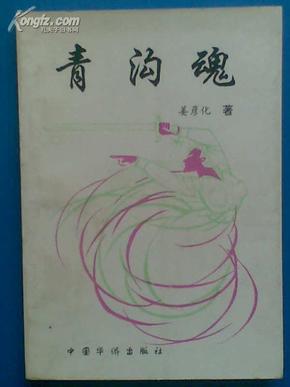 Kongfz.com
孔夫子旧书网
青沟魂
姜彦化 著
中国华侨出版社